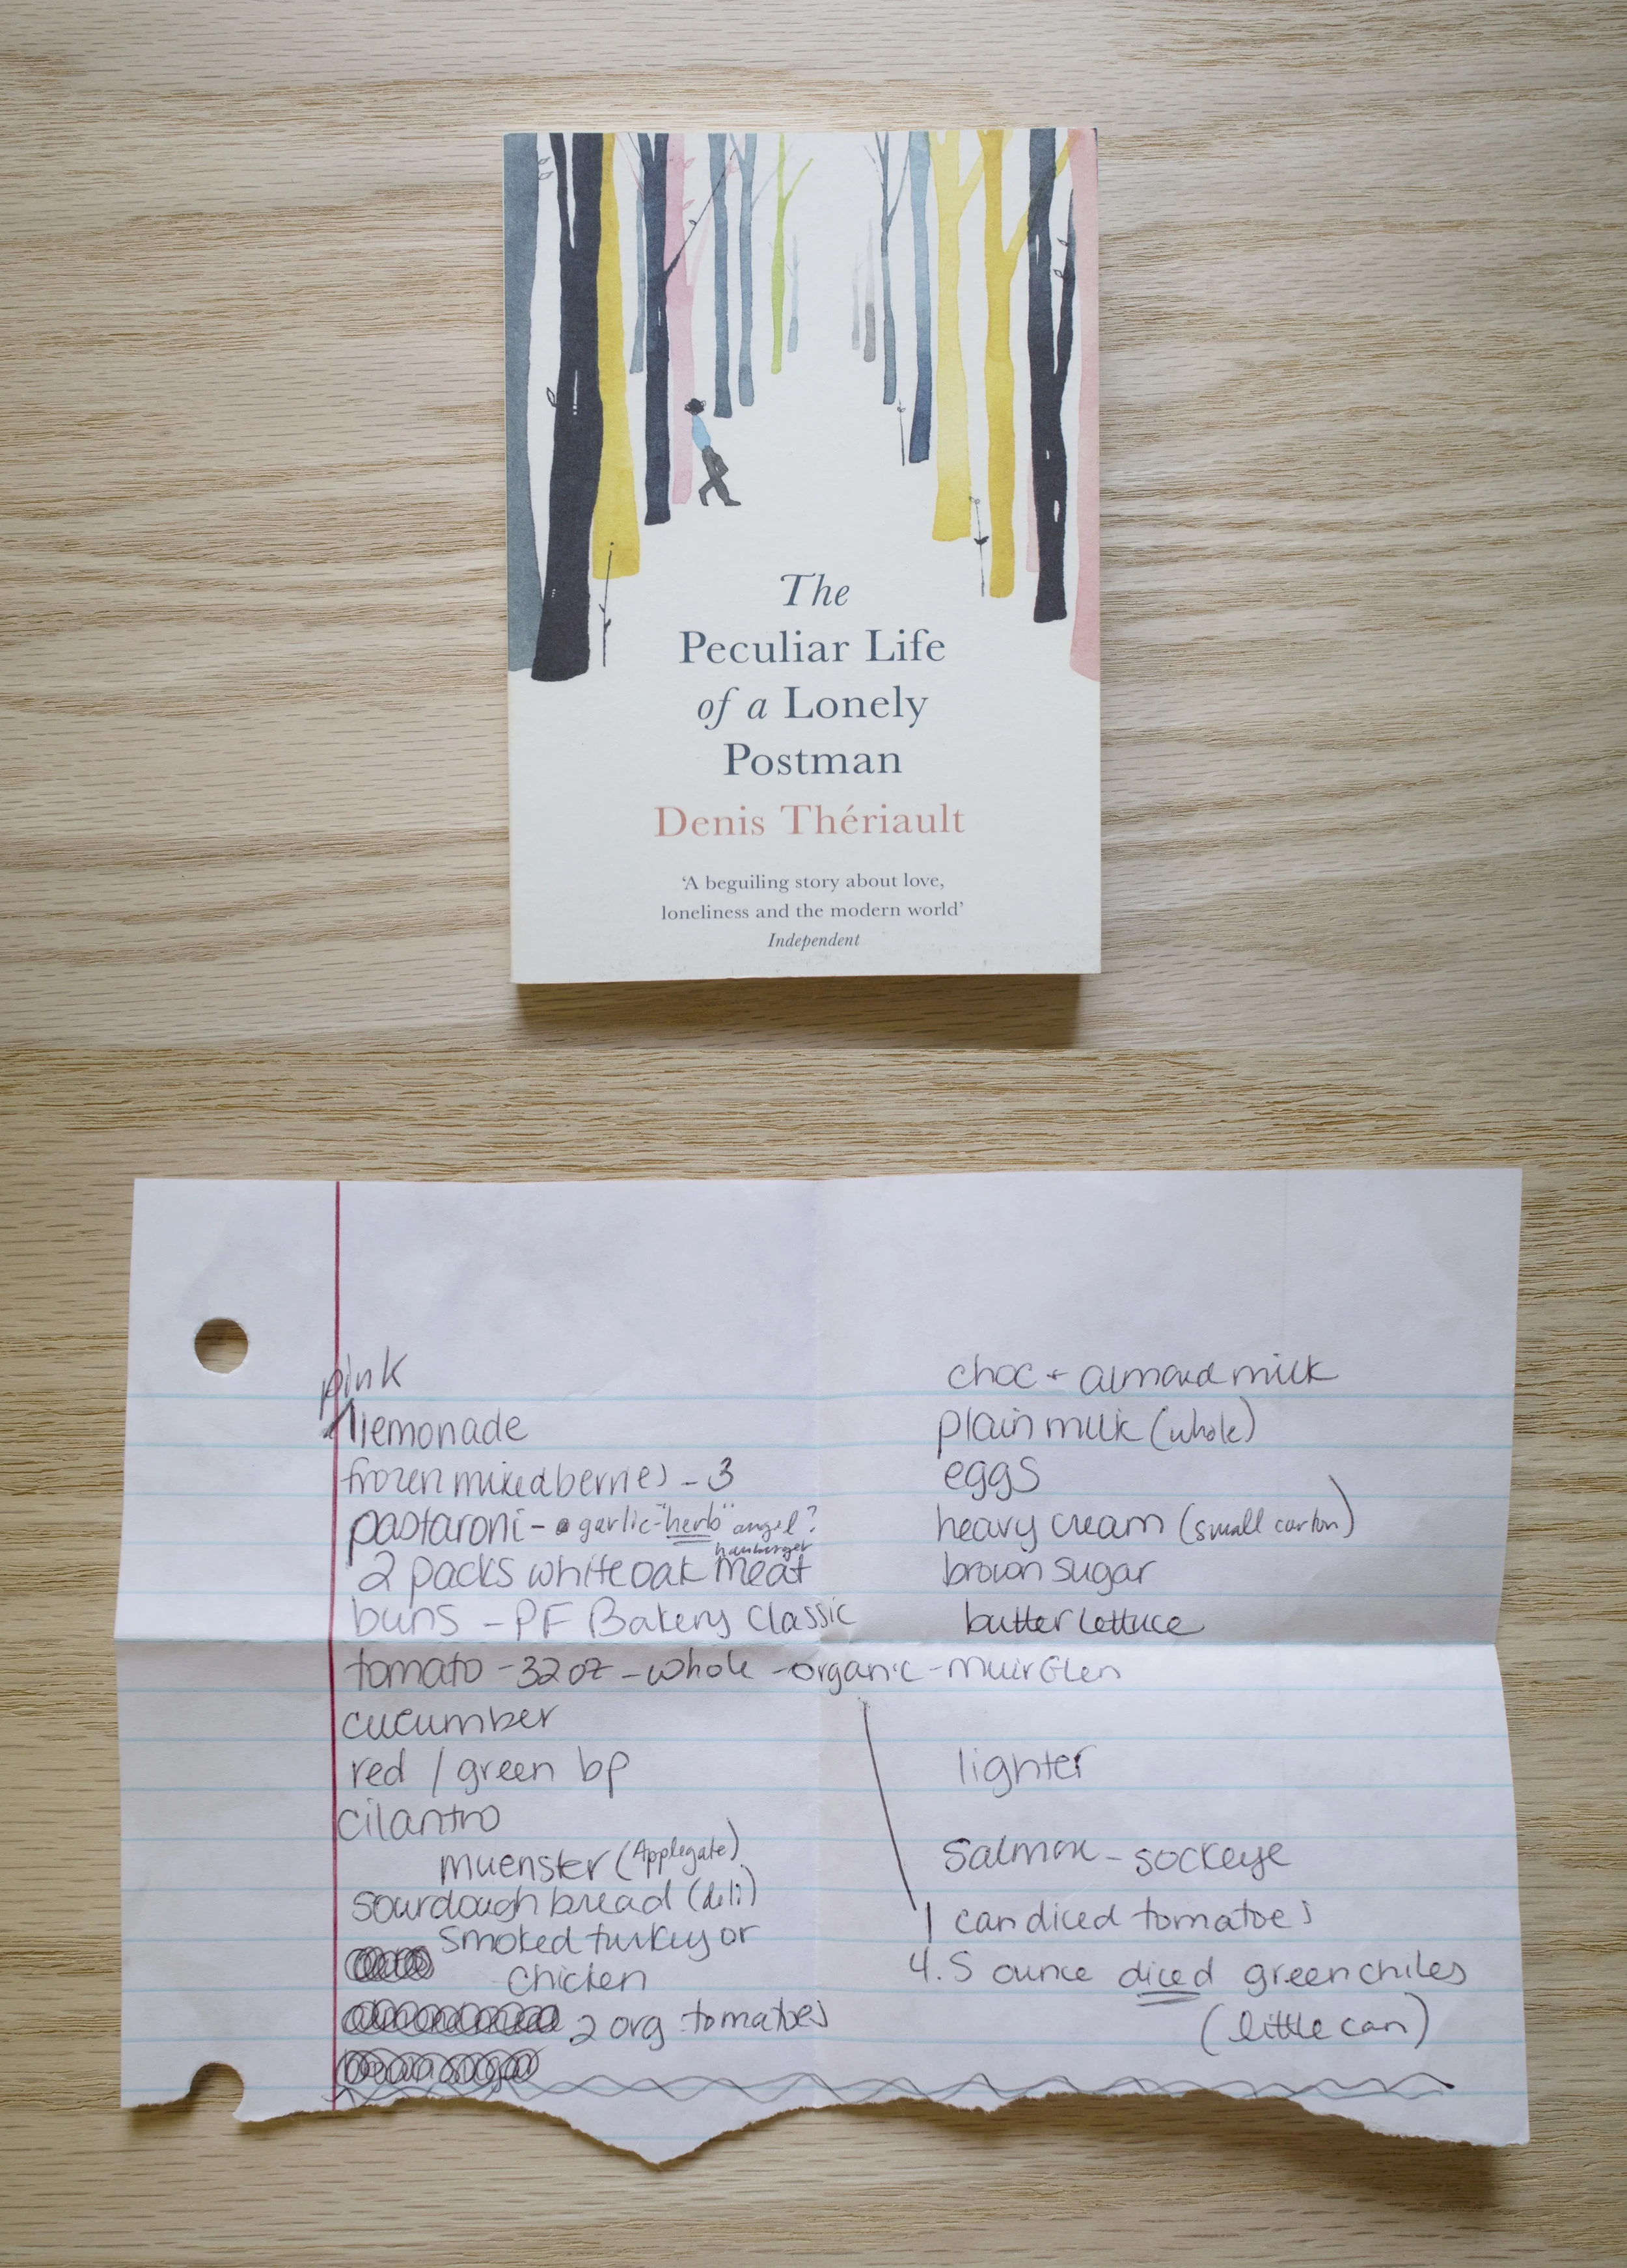 The
Peculiar Life
of a Lonely
Postman
Denis Thériault
‘A beguiling story about love,
loneliness and the modern world’
Independent
pink
lemonade
frozen mixed berries - 3
pastaroni - garlic - "herb" angel?
hamburger
2 packs white oak meat
buns - PF Bakery Classic
tomato - 32 oz - whole - organic - muir Glen
cucumber
red / green bp
cilantro
muenster (Applegate)
sourdough bread (deli)
smoked turkey or
chicken
2 org tomatoes
choc + almond milk
plain milk (whole)
eggs
heavy cream (small carton)
brown sugar
butter lettuce
lighter
Salmon - sockeye
1 can diced tomatoes
4.5 ounce diced green chiles
(little can)